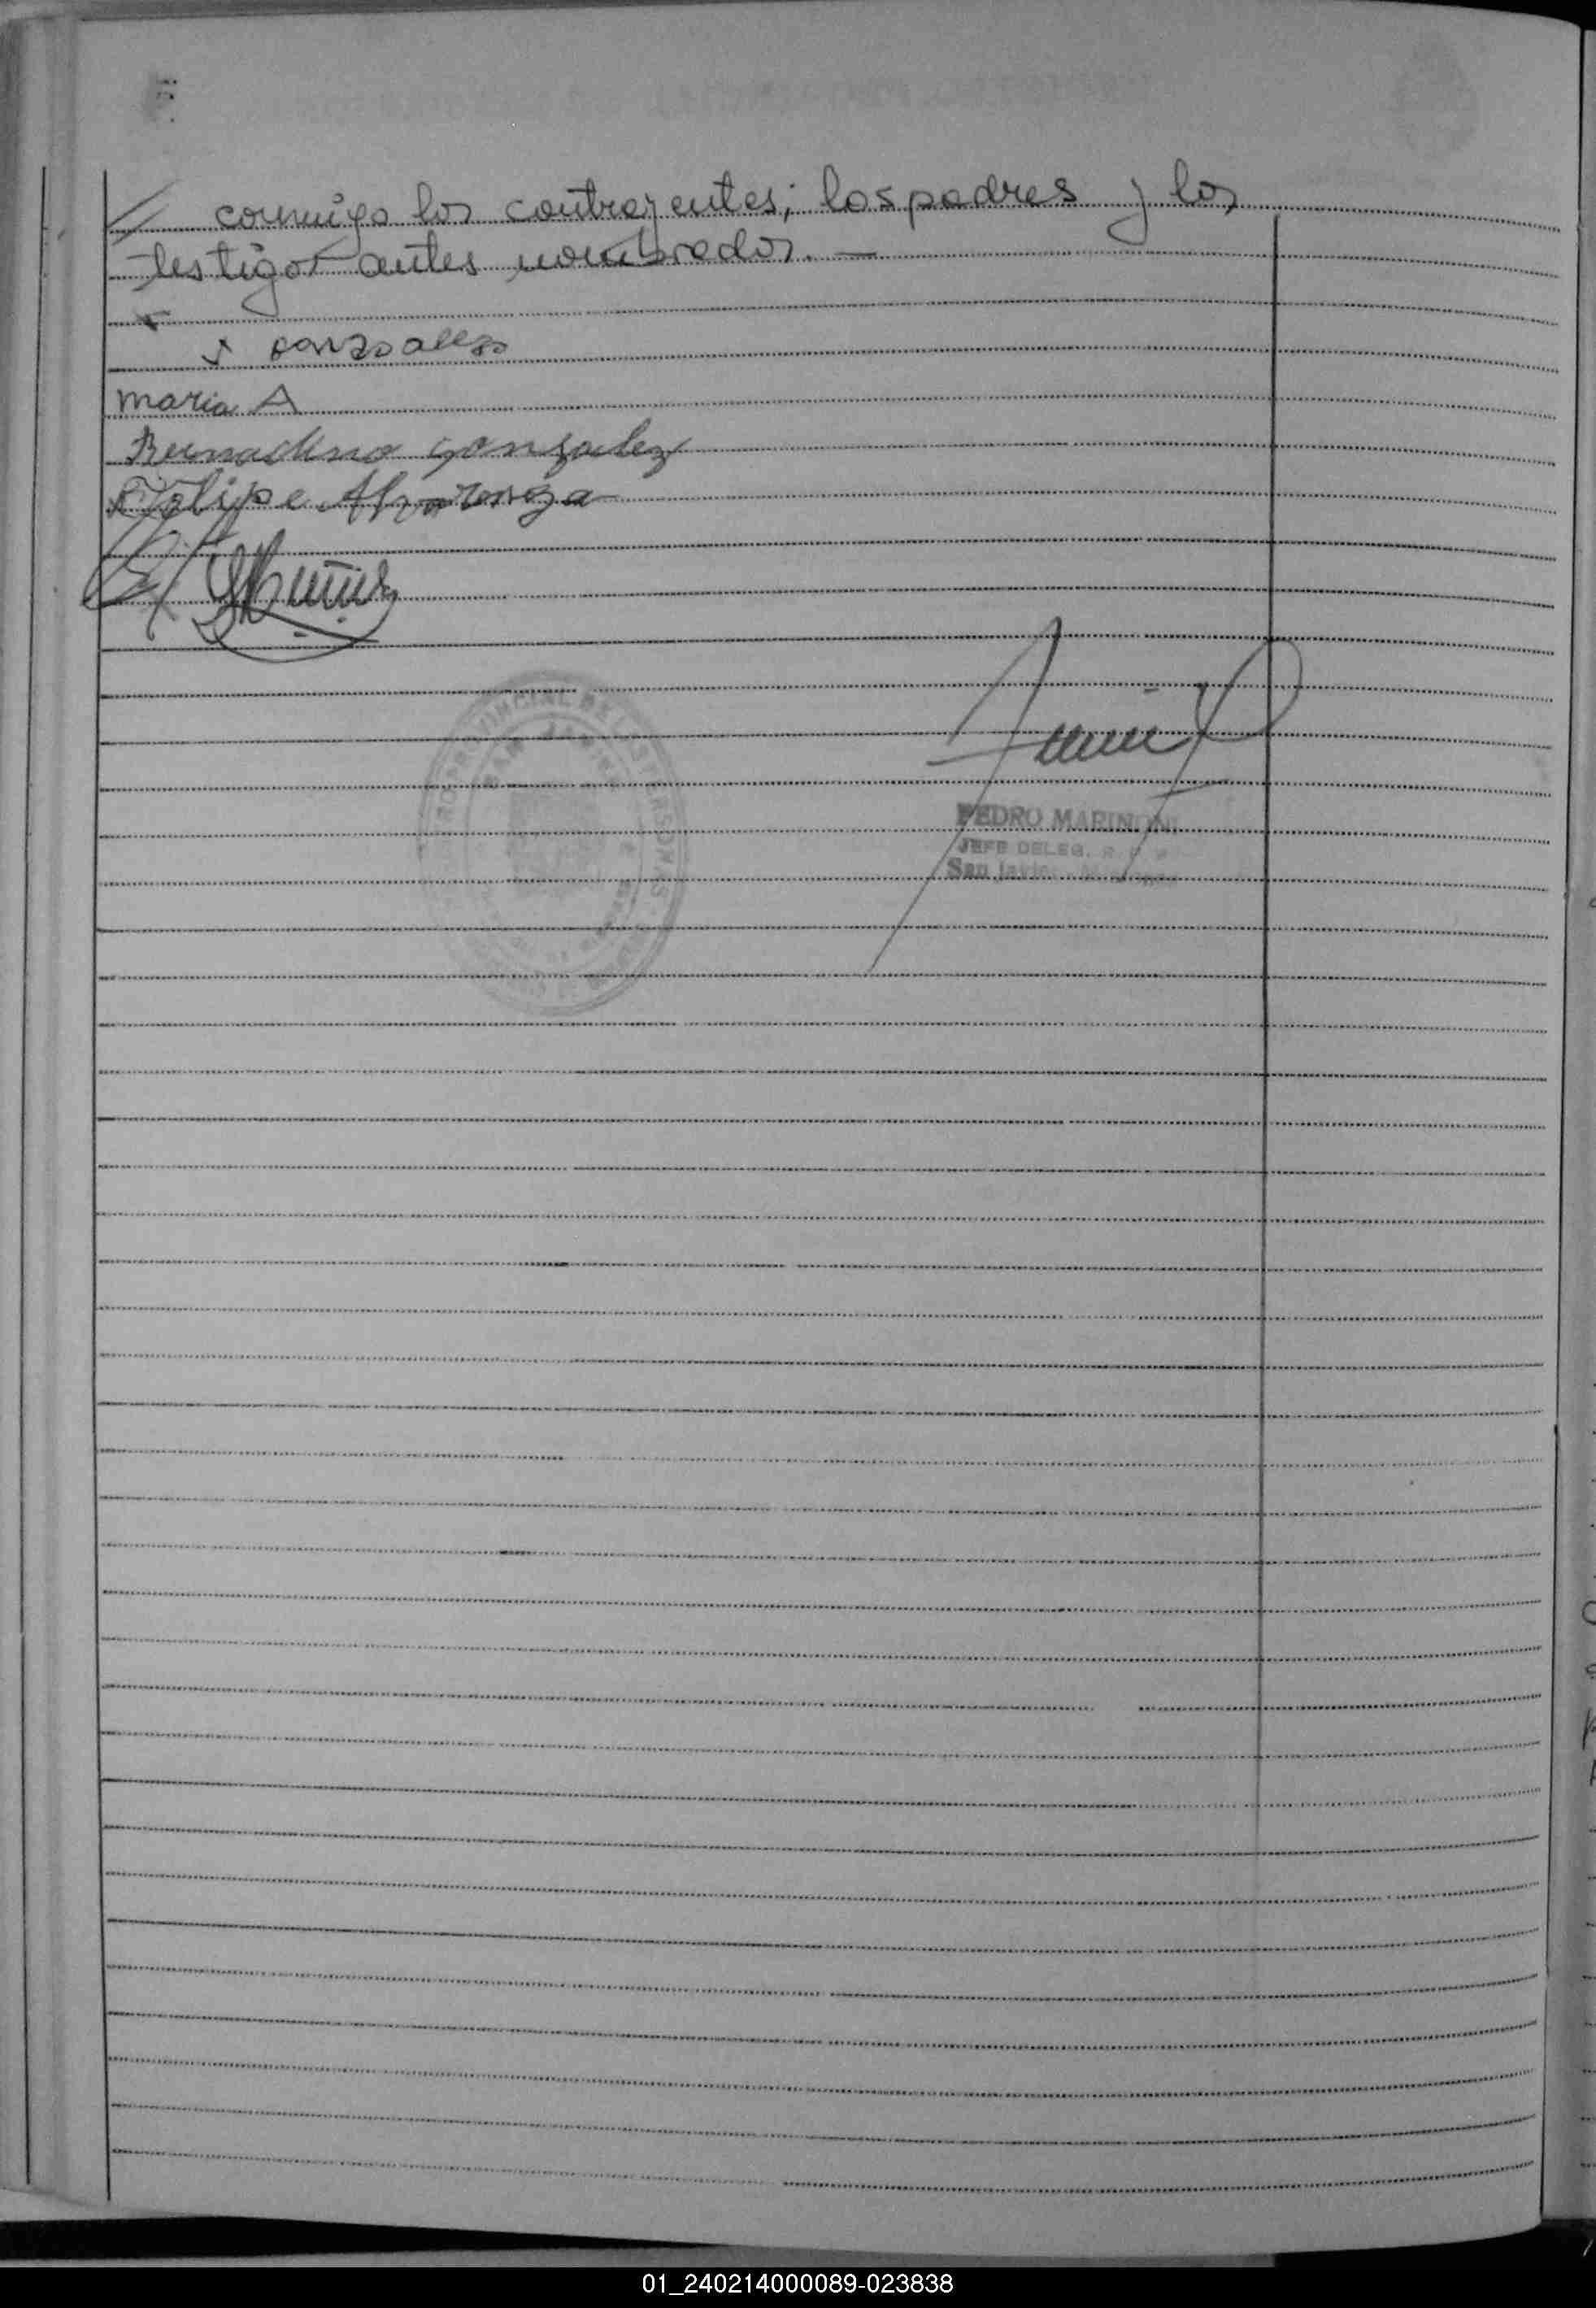 // conmigo los contrayentes; los padres y los
testigos antes nombrados. —
x gonzalez
maria A
Bernardino gonzalez
Felipe
PEDRO MARINONI
JEFE DELEG. R. P. P.
San Javier
01_240214000089-023838